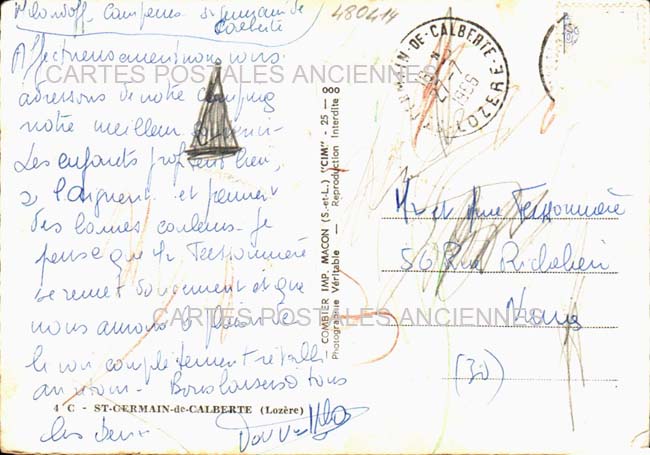 campeurs St germain de
Calberte
480414
Affectueusement nous vous
adressons de notre camping
notre meilleur souvenir.
Les enfants profitent bien,
se baignent et prennent
des bonnes couleurs. Je
pense que Mr Teissonnière
se remet doucement et que
nous aurons le plaisir de
le voir complètement rétabli
au retour. Bons baisers à tous
les deux
4 C - ST-GERMAIN-de-CALBERTE (Lozère)
CARTES POSTALES ANCIENNES
CARTES POSTALES ANCIENNES
COMBIER IMP. MACON (S.-et-L.) "CIM" - 25 - 000
Photographie Véritable - Reproduction Interdite
GERMAIN-DE-CALBERTE
LOZERE
Mr et Mme Teissonnière
56 Rue Richelieu
Nîmes
(30)